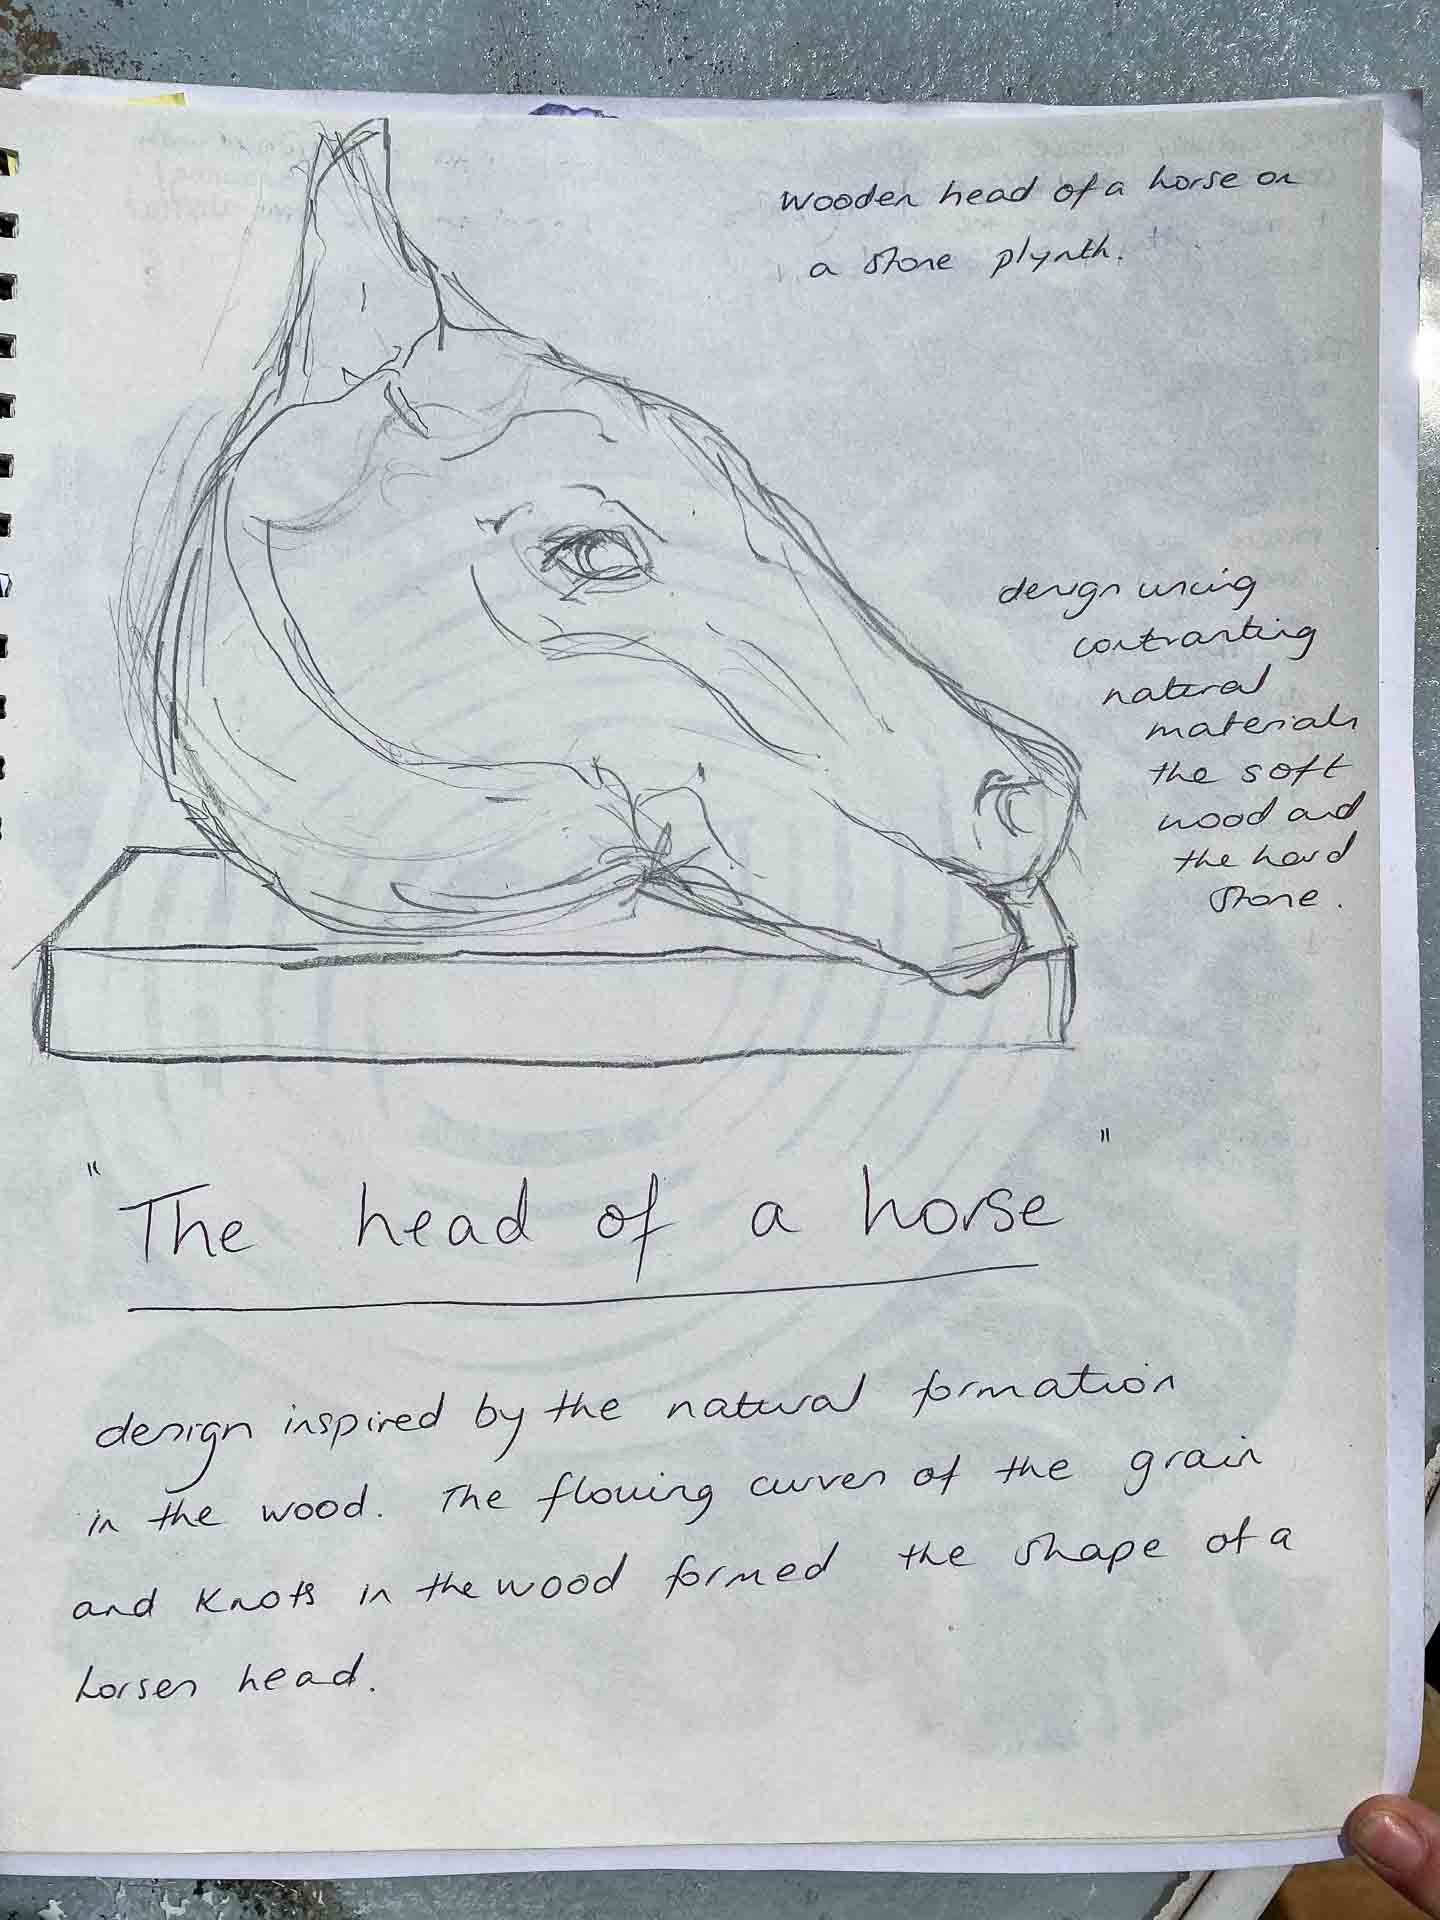 wooden head of a horse on
a stone plynth.
design using
contrasting
natural
materials
the soft
wood and
the hard
stone.
"The head of a horse"
design inspired by the natural formation
in the wood. The flowing curves of the grain
and knots in the wood formed the shape of a
horses head.